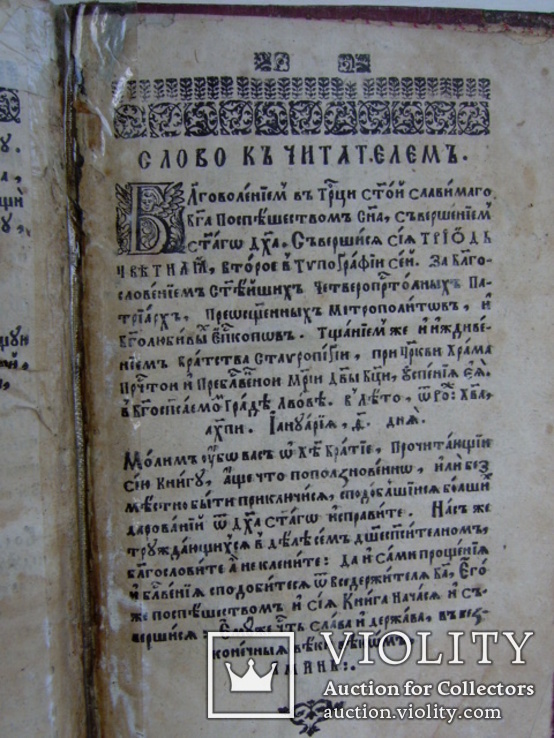 СЛОВО КЪ ЧИТАТЕЛЕМЪ.
БЛ͠ГОВОЛЕНІЕМЪ в Трⷪ҇ци Ст͠ой Славимаго
Бг͠а Поспѣшествомъ Сн͠а, Съвершеніемъ
Ст͠агѡ Дх͠а. Съвершисѧ Сіѧ ТРІѠДЬ
ЦВѢТНАѦ, второе в Тѷпографіи Сей. За Бл͠го
Словеніемъ Ст͠ѣйшихъ Четверопрⷭ҇толныхъ Па
тріархъ, Преѡсщ͠енныхъ Митрополитовъ, и
Бг͠олюбивыⷯ Еп͠скоповъ. Тщаніемъ же и иждиве
ніемъ Братства Ставропігіи, при Цр͠кви Храма
Прⷱ҇той и Преблⷭ҇венной Мр͠іи Дв͠ы Бц͠и, Оуспеніѧ Еѧ̀.
в Бг͠оспⷭ҇аемоⷨ Градѣ Лвовѣ. в Лѣто, ѿ Роⷤ: Хв͠а,
҂ахпи. Іануаріѧ, д͠. днѧ̀.
Молимъ оубо васъ ѡ Хⷭ҇ѣ Братіе, Прочитающіи
сію Книгу, аще что поползновенно, или без
мѣстно быти приключисѧ, сподобльшіисѧ болши
дарованіи ѿ Дх͠а Ст͠агѡ исправите. Насъ же
труждающихсѧ в дѣлѣ семъ дш͠еспⷭ҇ителномъ,
благословите а не клените: да и сами прощеніѧ
и блⷭ҇веніѧ сподобитесѧ ѿ Вседержителѧ Бг͠а, Егѡ́
же поспѣшествомъ и сіѧ Книга Начасѧ и Съ
вершисѧ: Емуже чⷭ҇ть слава и держава, въ без
конечныѧ вѣки вѣкѡмъ,
АМИНЬ:.
VIOLITY
Auction for Collectors
auction.violity.com